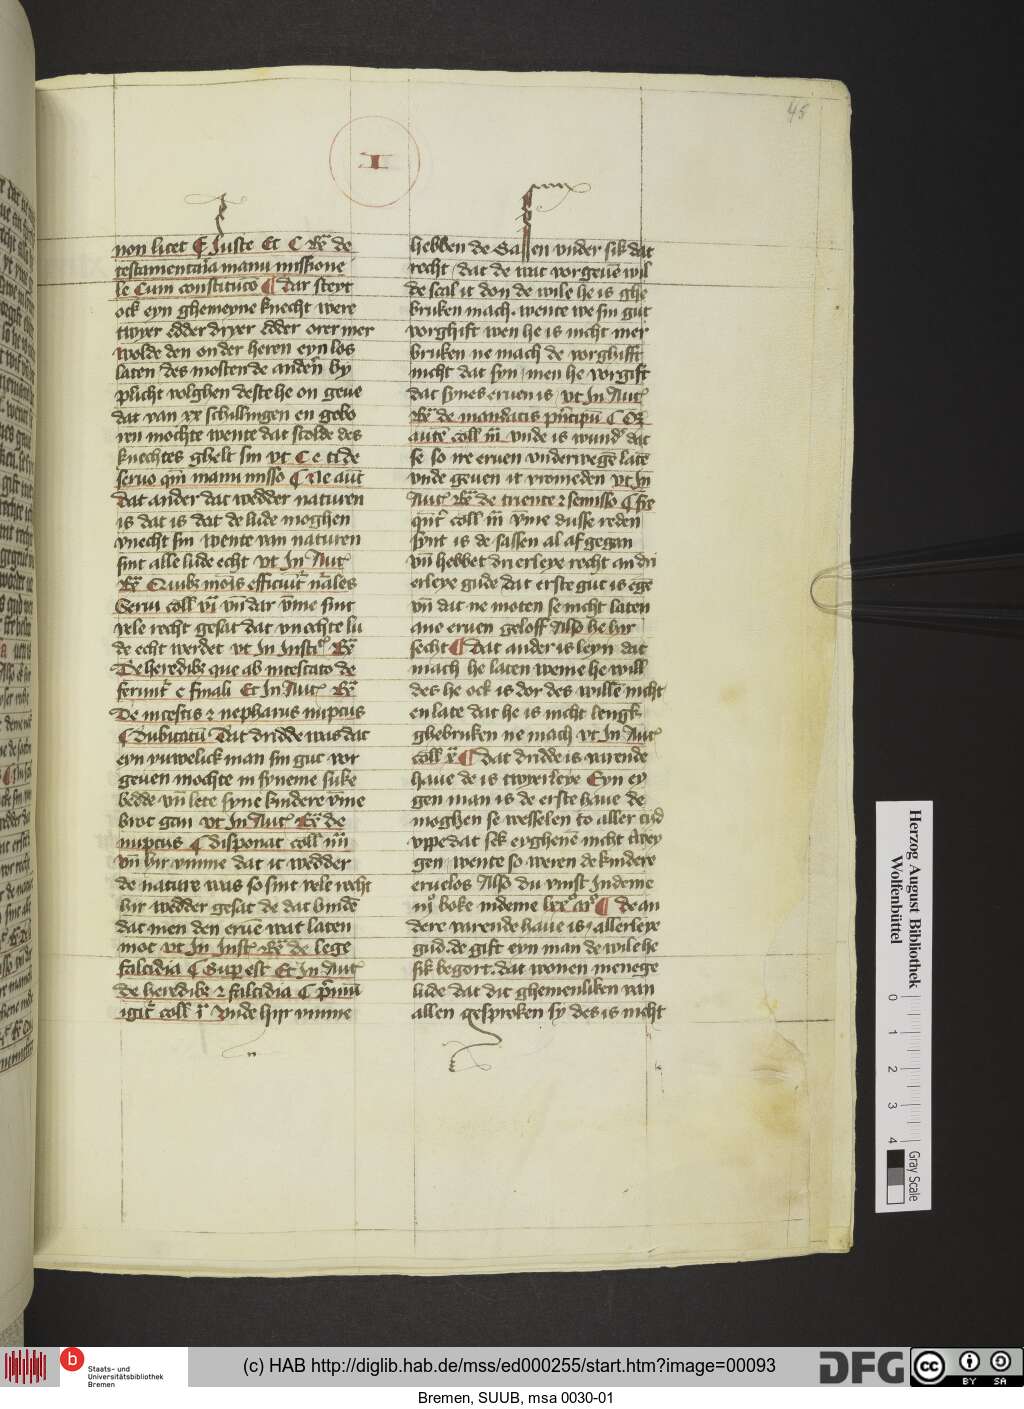 45
I
non licet ⁋ Juste Et C Rē de
testamentaria manu missione
le Cum constitucō ¶ dar steyt
ock eyn ghemeyne knecht were
twyer edder dryer edder orer mer
wolde den onder heren eyn los
laten des mosten de andern by
plicht volghen deste he on geue
dat van xx schillingen en gebo
ren mochte wente dat scolde des
knechtes ghelt sin vt C e ti de
seruo qm̄ manu misso ¶ Ne aut̄
dat ander dat wedder naturen
is dat is dat de lude moghen
vnecht sin wente van naturen
sint alle lude echt vt Jn Aut
Rē Quibz mo͞is efficiut̄ n͞rales
Serui coll vı̄ vn̄ dar v̄me sint
vele recht gesat dat vnechte lu
de echt werdet vt Jn Insti Rē
De heredibz que ab intestato de
ferunt̄ e finali Et Jn Aut Rē
De incestis ⁊ nephariis nupcus
¶ dubitatū Dat dridde was dat
eyn yuwelick man sin gut vor
geuen mochte in syneme suke
bedde vn̄ lete syne kindere v̄me
brot gan vt Jn Aut Rē de
nupcus ¶ disponat coll iiij
vn̄ hir vmme dat it wedder
de nature was so sint vele recht
hir wedder gesat de dat bindē
dat men den eruē wat laten
mot vt Jn Inst Rē de lege
falcidia ¶ Sup est Et Jn Aut
de heredibz ⁊ falcidia ¶ p̄mū
igit̄ coll ı̄ vnde hijr vmme
hebben de Sassen vnder sik dat
recht dat de wat vorgeuē wil
de scal it don de wile he is ghe
bruken mach. wente we sin gut
vorghift wen he is nicht mer
bruken ne mach de vorghifft
nicht dat syn men he vorgift
dat synes eruen is vt Jn Aut
Rē de mandatis p͞ncipū C Oz
autē coll iij vnde is wund dat
se so ire eruen vnderwegē latē
vnde geuen it vromeden vt Jn
Aut Rē de triente ⁊ semisso ¶ fre
qn̄t coll iij vme dusse reden
synt is de sassen al af gegan
vn̄ hebbet drierleye recht an dri
erleye gude dat erste gut is egē
vn̄ dat ne moten se nicht laten
ane eruen geloff Also he hir
secht ¶ dat ander is leyn dat
mach he laten weme he will
des he ock is dor des willē nicht
en late dat he is nicht lengk
ghebruken ne mach vt Jn Aut
coll x̄ ¶ dat dridde is varende
haue de is twyerleye Eyn ey
gen man is de erste haue de
moghen se wesselen to aller tijd
vppe dat sik erghenē nicht twey
gen wente so weren de kindere
eruelos Also du vinst Jndeme
iijº boke indeme lxxº arº ¶ de an
dere varende haue is allerleye
gud de gift eyn man de wile he
sik begort. dat wonen menege
lude dat dit ghemenliken van
allen gesproken sy des is nicht
Herzog August Bibliothek
Wolfenbüttel
0 1 2 3 4
Gray Scale
b
Staats- und
Universitätsbibliothek
Bremen
(c) HAB http://diglib.hab.de/mss/ed000255/start.htm?image=00093
DFG
cc
BY SA
Bremen, SUUB, msa 0030-01